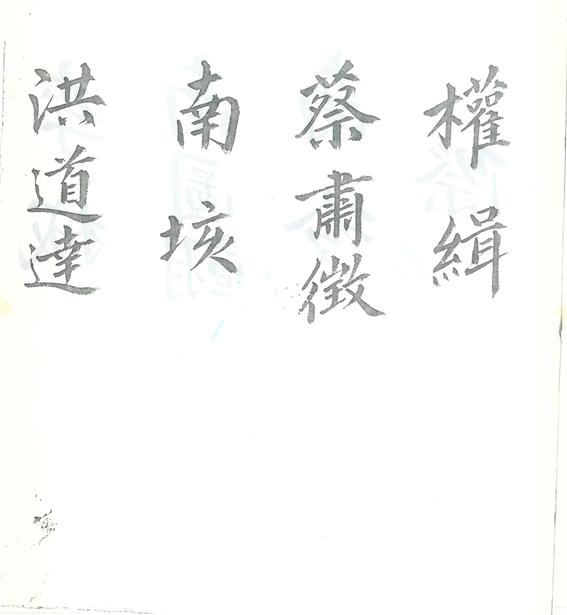 權緝
蔡肅徵
南垓
洪道達